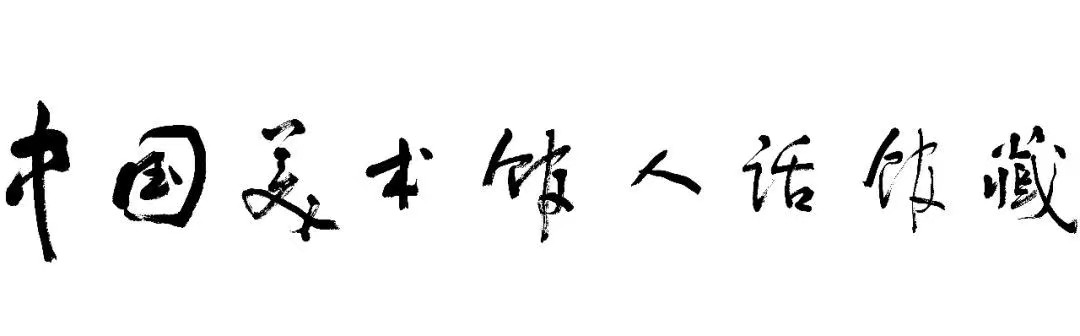 中国美术馆人话馆藏